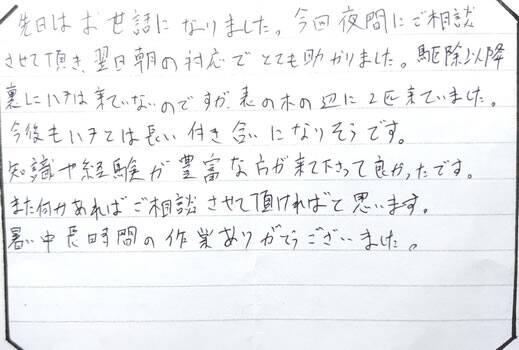 先日はお世話になりました。今回夜間にご相談
させて頂き、翌日朝の対応でとても助かりました。駆除以降
裏にハチは来ていないのですが、表の木の辺に2匹来ていました。
今後もハチとは長い付き合いになりそうです。
知識や経験が豊富な方が来て下さって良かったです。
また何かあればご相談させて頂ければと思います。
暑い中長時間の作業ありがとうございました。